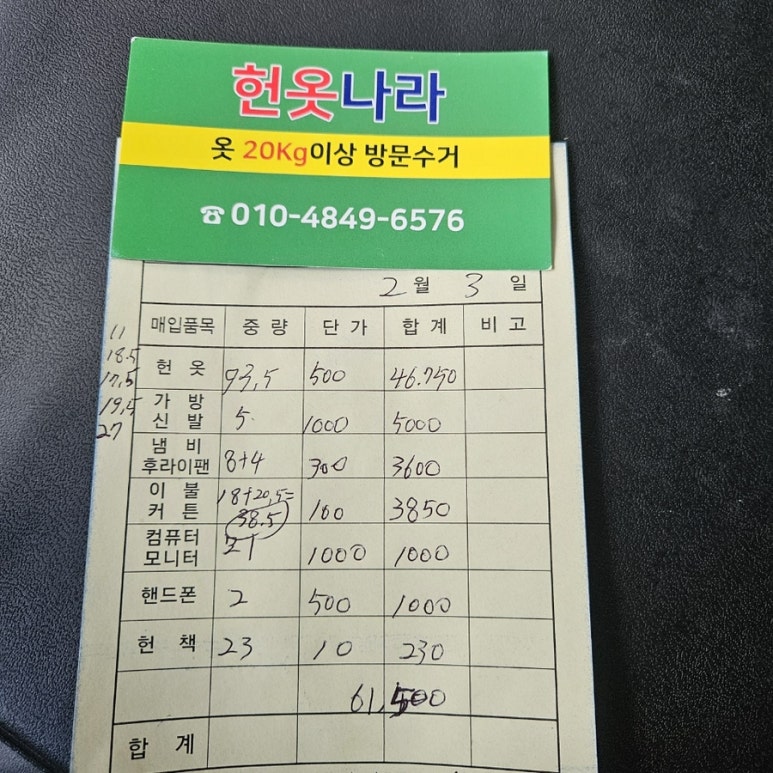 헌옷나라
옷 20Kg이상 방문수거
☎010-4849-6576
2월 3일
매입품목 중량 단가 합계 비고
11
18.5
17,5
19,5
27
헌 옷 93,5 500 46.750
가방 신발 5 1000 5000
냄비 후라이팬 8+4 300 3600
이불 커튼 18+20,5= 38.5 100 3850
컴퓨터 모니터 1 1000 1000
핸드폰 2 500 1000
헌 책 23 10 230
61,500
합 계